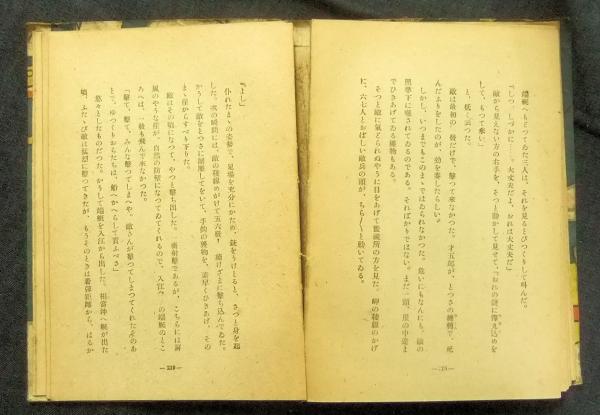 端艇へもどつてゐた三人は、それを見るとびつくりして叫んだ。
『しつ、しづかに――。大丈夫だよ、おれは大丈夫だ』
敵から見えない方の右手を、そつと動かして見せて、『おれの銃に弾丸込めを
して、もつて来い』
と、低く云つた。
敵は最初の一発だけで、撃つて来なかつた。才五郎が、とつさの機転で、死
んだふりをしたのが、効を奏したらしい。
しかし、いつまでもこのまゝではゐられなかつた。危いにもなんにも、敵の
照準下に曝されてゐるのである。そればかりではない。まだ一頭、崖の中途ま
でひきあげてゐる獲物もある。
そつと敵に氣どられぬやうに目をあげて監視所の方を見た。岬の稜線のかげ
に、六七人とおぼしい敵兵の頭が、ちら/\と動いてゐる。
『よし』
仆れたまゝの姿勢で、足場を充分にかため、銃をうけとると、さつと身を起
した。次の瞬間には、敵の稜線めがけて五六發、續けざまに撃ち込んでゐた。
かうして敵をとつさに制壓しておいて、手飼の獲物を、素早くひきあげ、その
まゝ崖からすべり下りた。
敵はその頃になつて、やつと撃ち出した。
風のやうな崖が、自然の防壁になつてゐてくれるので、入江の端艇のとこ
ろへは、一發も飛んで来なかつた。
『撃て、撃て、みんな撃つてしまへや、敵さんが撃つてしまつてくれたそのあ
とで、ゆつくりおらたちは、船へかへらして貰ふべさ』
悠々としたものだつた。かうして端艇を入江から出した。相當沖へ艇が出た
頃、ふたゝび敵は猛烈に撃つてきたが、もうそのときは着弾距離から、はるか
—218—
—219—